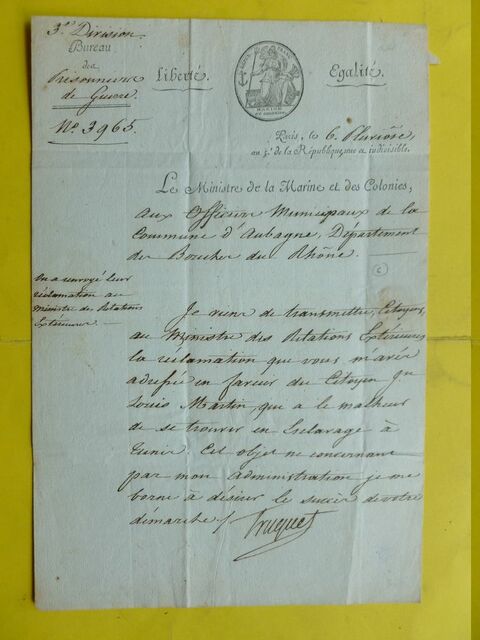 3e. Division.
Bureau
des
Prisonniers
de Guerre.
No. 3965.
Liberté.
Egalité.
MARINE
ET COLONIES
Paris, le 6. Pluviôse
an 5e. de la République, une et indivisible.
Le Ministre de la Marine et des Colonies,
aux Officiers Municipaux de la
Commune d'Aubagne, Département
des Bouches du Rhône.
On a envoyé leur
réclamation au
Ministre des Relations
Extérieures.
Je viens de transmettre, Citoyens,
au Ministre des Relations Extérieures
la réclamation que vous m'avez
adressée en faveur du Citoyen
Louis Martin, qui a le malheur
de se trouver en Esclavage à
Tunis. Cet objet ne concernant
pas mon administration je me
borne à désirer le succès de votre
démarche./.
Truguet